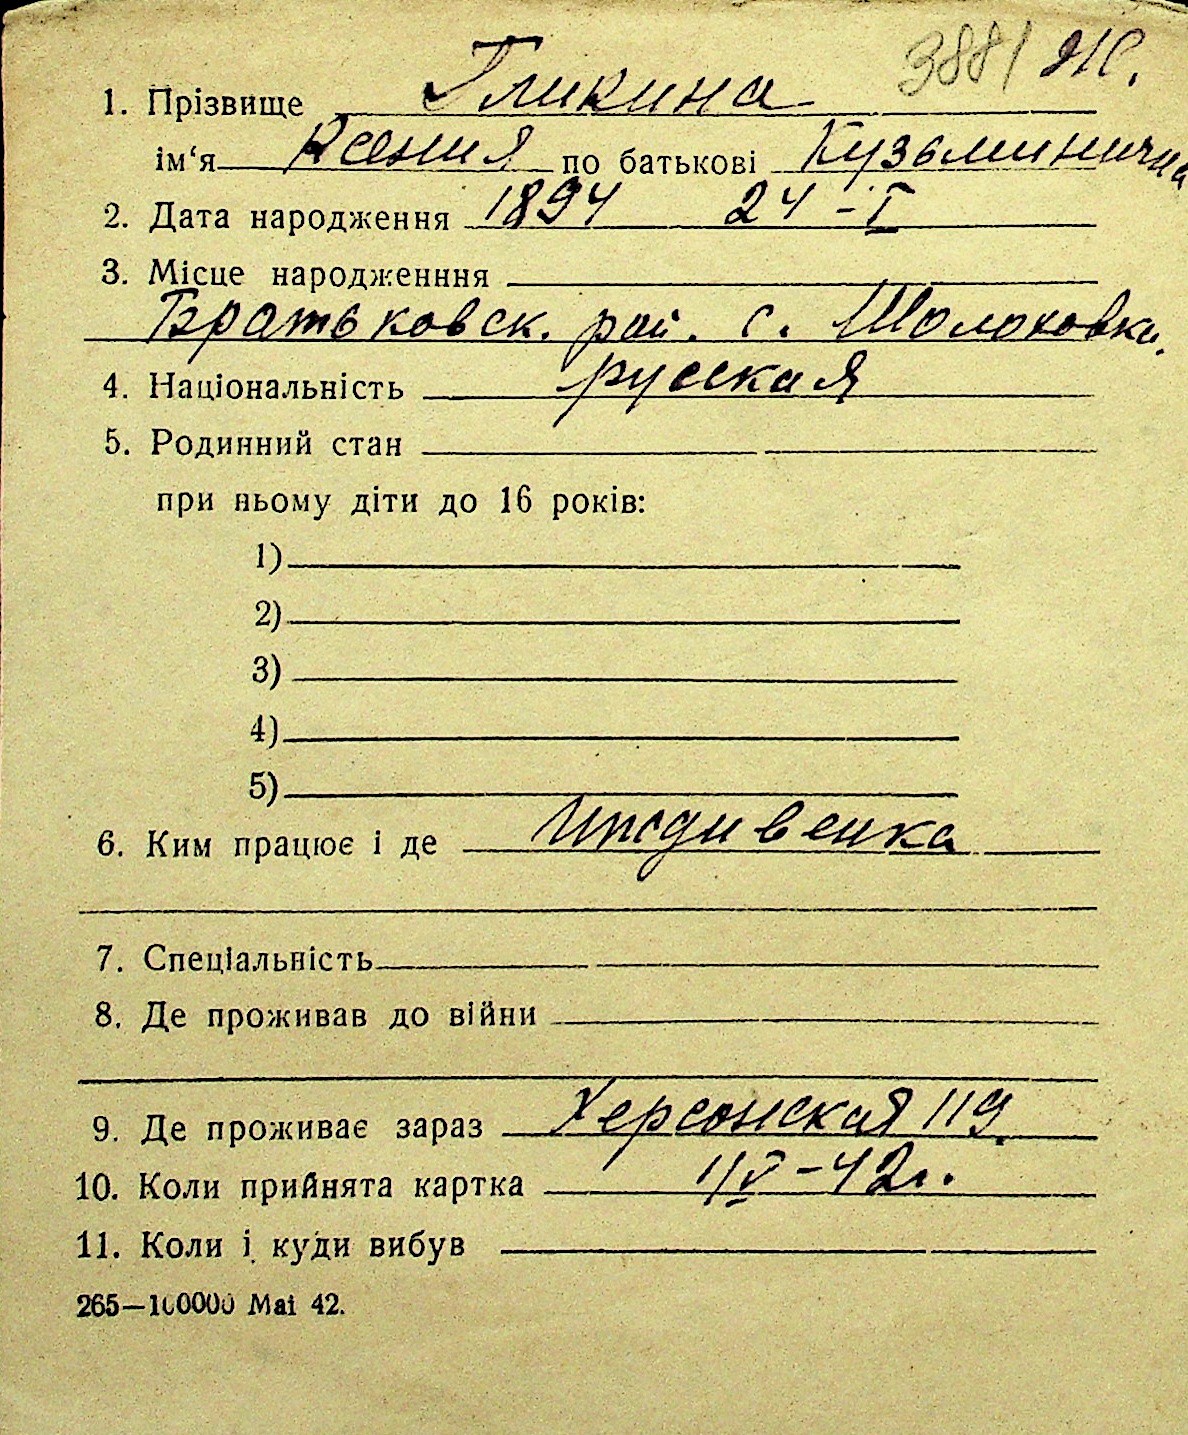 3881 Ж.
1. Прізвище Гликина
ім‘я Ксения по батькові Кузьминична
2. Дата народження 1894 24-I
3. Місце народженння
Братьковск. рай. с. Шолоховка.
4. Національність русская
5. Родинний стан
при ньому діти до 16 років:
1)
2)
3)
4)
5)
6. Ким працює і де Иждивенка
7. Спеціальність
8. Де проживав до війни
9. Де проживає зараз Херсонская 119.
10. Коли прийнята картка 1/V-42г.
11. Коли і куди вибув
265—100000 Mai 42.